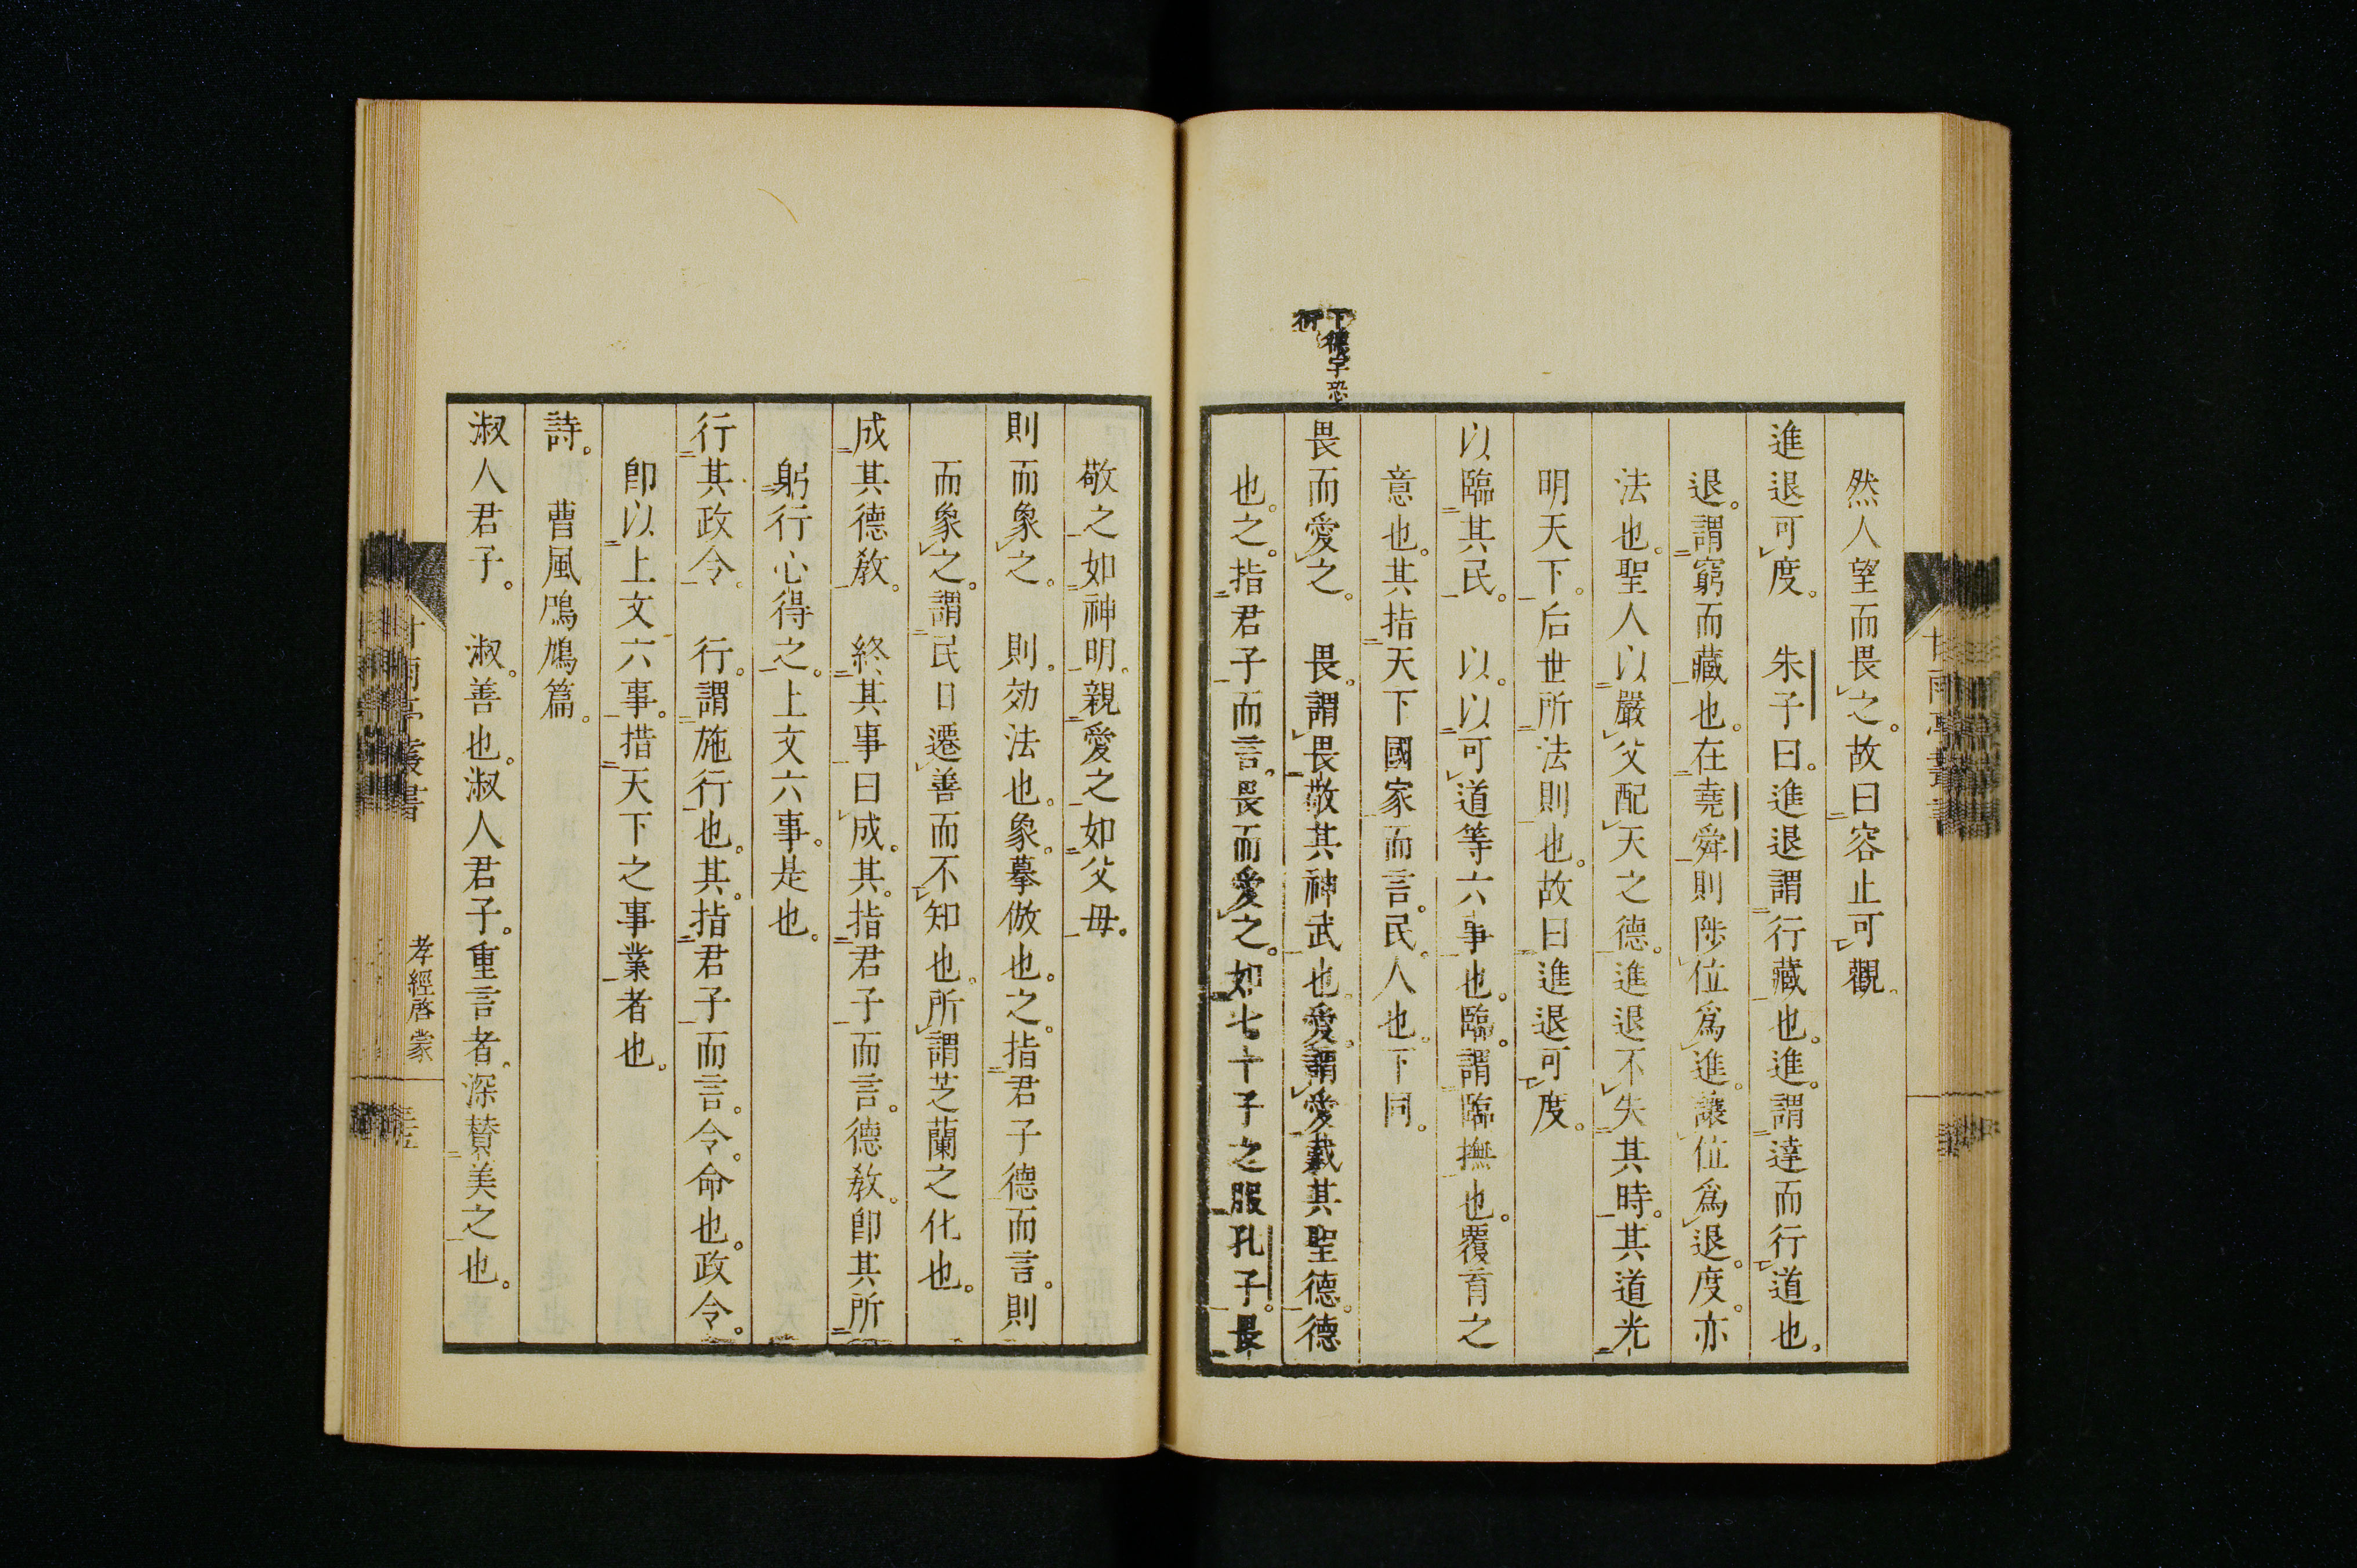 然人望而畏之。故曰容止可觀。
進退可度。　朱子曰。進退謂行藏也。進。謂達而行道也。
退。謂窮而藏也。在堯舜則陟位爲進。讓位爲退。度。亦
法也。聖人以嚴父配天之德。進退不失其時。其道光
明天下。后世所法則也。故曰進退可度。
以臨其民。　以。以可道等六事也。臨。謂臨撫也。覆育之
意也。其指天下國家而言。民。人也。下同。
下德字恐
衍
畏而愛之。　畏。謂畏敬其神武也。愛。謂愛戴其聖德。德
也。之。指君子而言。畏而愛之。如七十子之服孔子。畏
敬之如神明。親愛之如父母。
則而象之。　則。効法也。象。摹倣也。之。指君子德而言。則
而象之。謂民日遷善而不知也。所謂芝蘭之化也。
成其德教。　終其事曰成。其。指君子而言。德教。卽其所
躬行心得之。上文六事。是也。
行其政令。　行。謂施行也。其。指君子而言。令。命也。政令。
卽以上文六事。措天下之事業者也。
詩。　曹風鳲鳩篇。
淑人君子。　淑。善也。淑人君子。重言者。深贊美之也。
甘雨亭叢書
孝經啓蒙